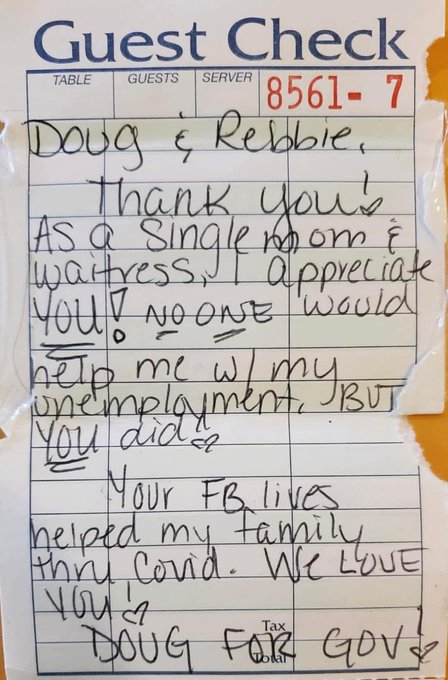 Guest Check
TABLE GUESTS SERVER 8561- 7
Doug & Rebbie,
Thank you!
As a single mom &
waitress, I appreciate
YOU! NO ONE would
help me w/ my
unemployment. BUT
YOU did!
Your FB lives
helped my family
thru Covid. We LOVE
YOU!
Tax
DOUG FOR GOV!
Total